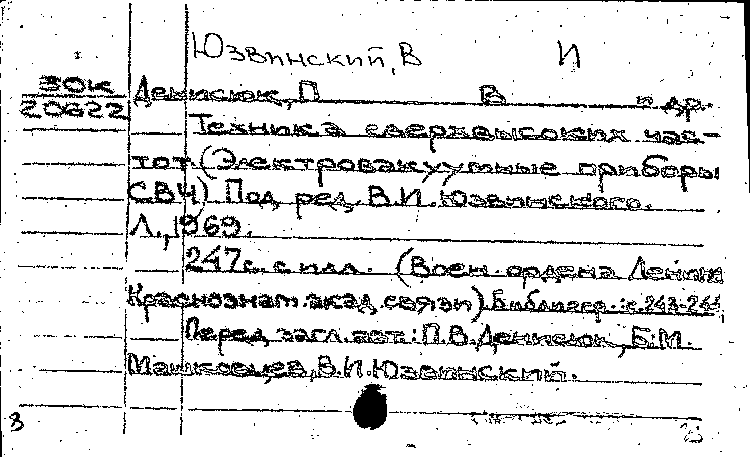 Юзвинский, В И
ЗОК Денисюк, П В и др.
20622
Техника сверхвысоких час-
тот (Электровакуумные приборы
СВЧ) Под ред. В.И. Юзвинского.
Л., 1969.
247с. с илл. (Воен. ордена Ленина
Краснознам. акад. связи) Библиогр.: с. 243-244
Перед загл. авт.: П.В. Денисюк, Б.М.
Машковцев, В.И. Юзвинский.
3